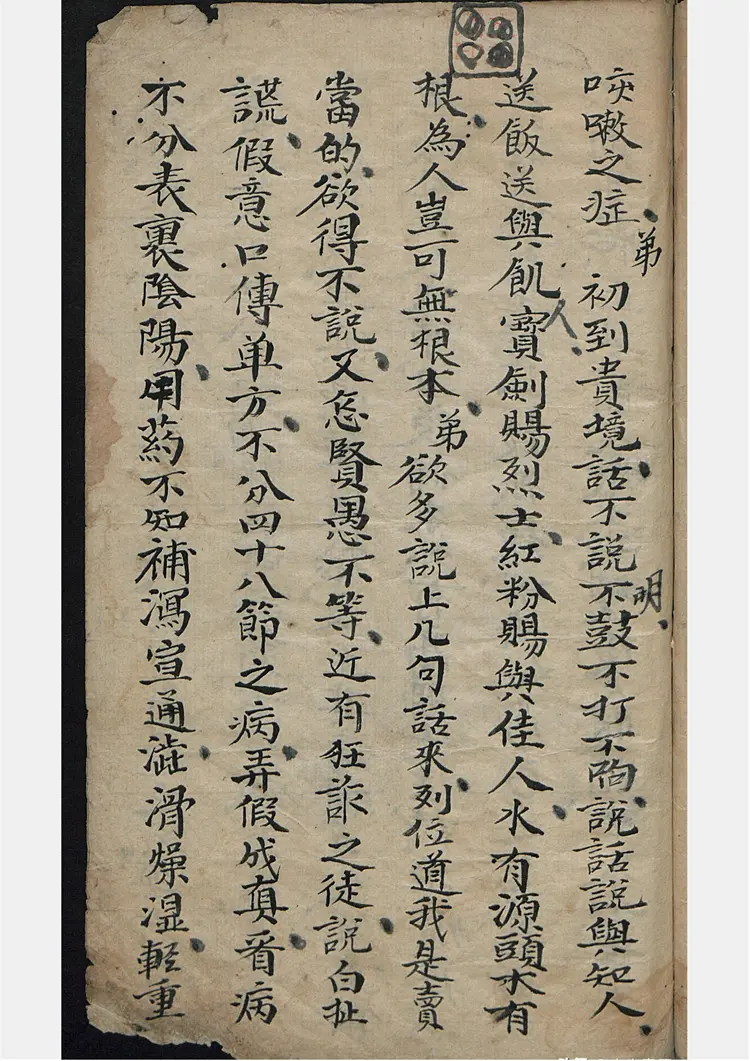 咳嗽之症弟初到貴境話不說不明鼓不打不响說話說與知人
送飯送與飢人寶劍賜烈士紅粉賜與佳人水有源頭木有
根為人豈可無根本弟欲多說上几句話來列位道我是賣
當的欲得不說又怎賢愚不等近有狂詐之徒說白扯
謊假意口傳单方不分四十八節之病弄假成真看病
不分表裏陰陽用药不知補瀉宣通澁滑燥湿輕重